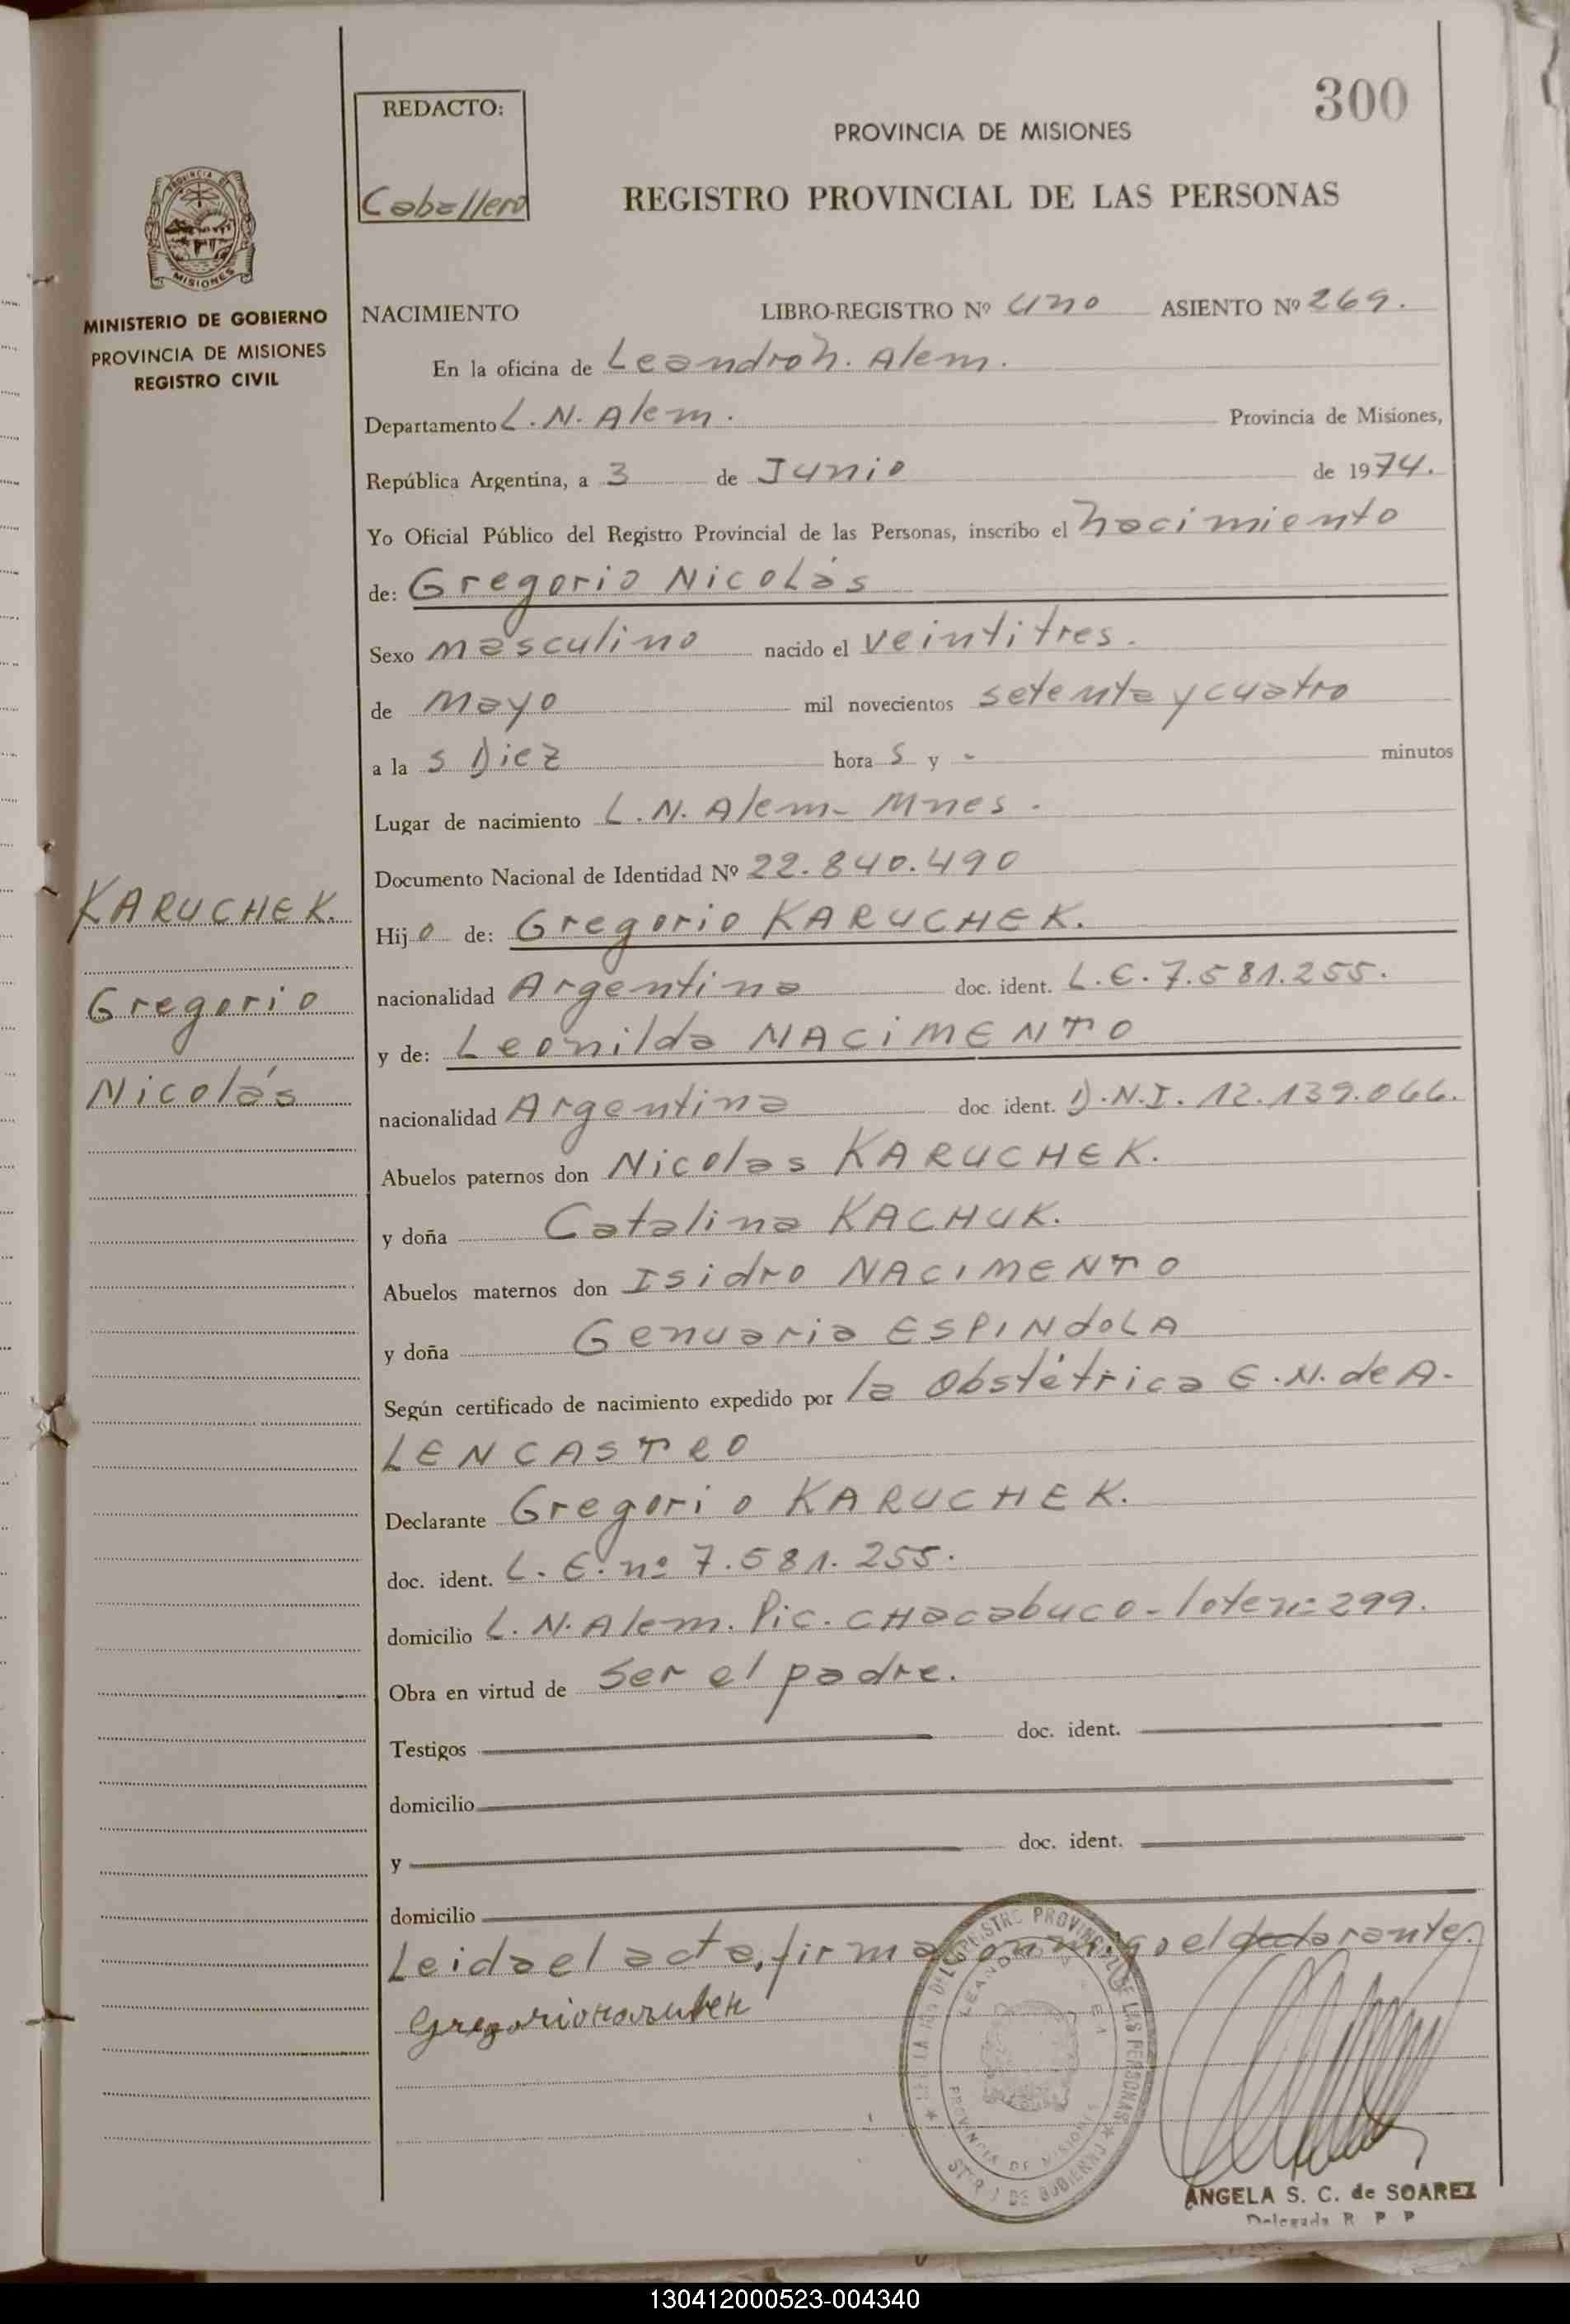 300
REDACTO:
Caballero
PROVINCIA DE MISIONES
REGISTRO PROVINCIAL DE LAS PERSONAS
MISIONES
MINISTERIO DE GOBIERNO
PROVINCIA DE MISIONES
REGISTRO CIVIL
NACIMIENTO LIBRO-REGISTRO Nº uno ASIENTO Nº 269.
En la oficina de Leandro N. Alem.
Departamento L. N. Alem. Provincia de Misiones,
República Argentina, a 3 de Junio de 1974.
Yo Oficial Público del Registro Provincial de las Personas, inscribo el nacimiento
de: Gregorio Nicolás
Sexo masculino nacido el veintitres.
de mayo mil novecientos setenta y cuatro
a la s Diez hora s y - minutos
Lugar de nacimiento L. N. Alem - Mnes.
Documento Nacional de Identidad Nº 22.840.490
KARUCHEK.
Gregorio
Nicolás
Hij o de: Gregorio KARUCHEK.
nacionalidad Argentina doc. ident. L.E. 7.581.255.
y de: Leonilda NACIMENTO
nacionalidad Argentina doc. ident. D.N.I. 12.139.066.
Abuelos paternos don Nicolas KARUCHEK.
y doña Catalina KACHUK.
Abuelos maternos don Isidro NACIMENTO
y doña Genuaria ESPINDOLA
Según certificado de nacimiento expedido por la Obstétrica E. N. de A.
LENCASTRO
Declarante Gregorio KARUCHEK.
doc. ident. L. E. nº 7.581.255.
domicilio L. N. Alem. Pic. CHacabuco - lote nº 299.
Obra en virtud de ser el padre.
Testigos doc. ident.
domicilio
y doc. ident.
domicilio
Leida el acta, firma conmigo el declarante.
Gregorio
PROVINCIA DE MISIONES
ANGELA S. C. de SOAREZ
Delegada R P P
130412000523-004340